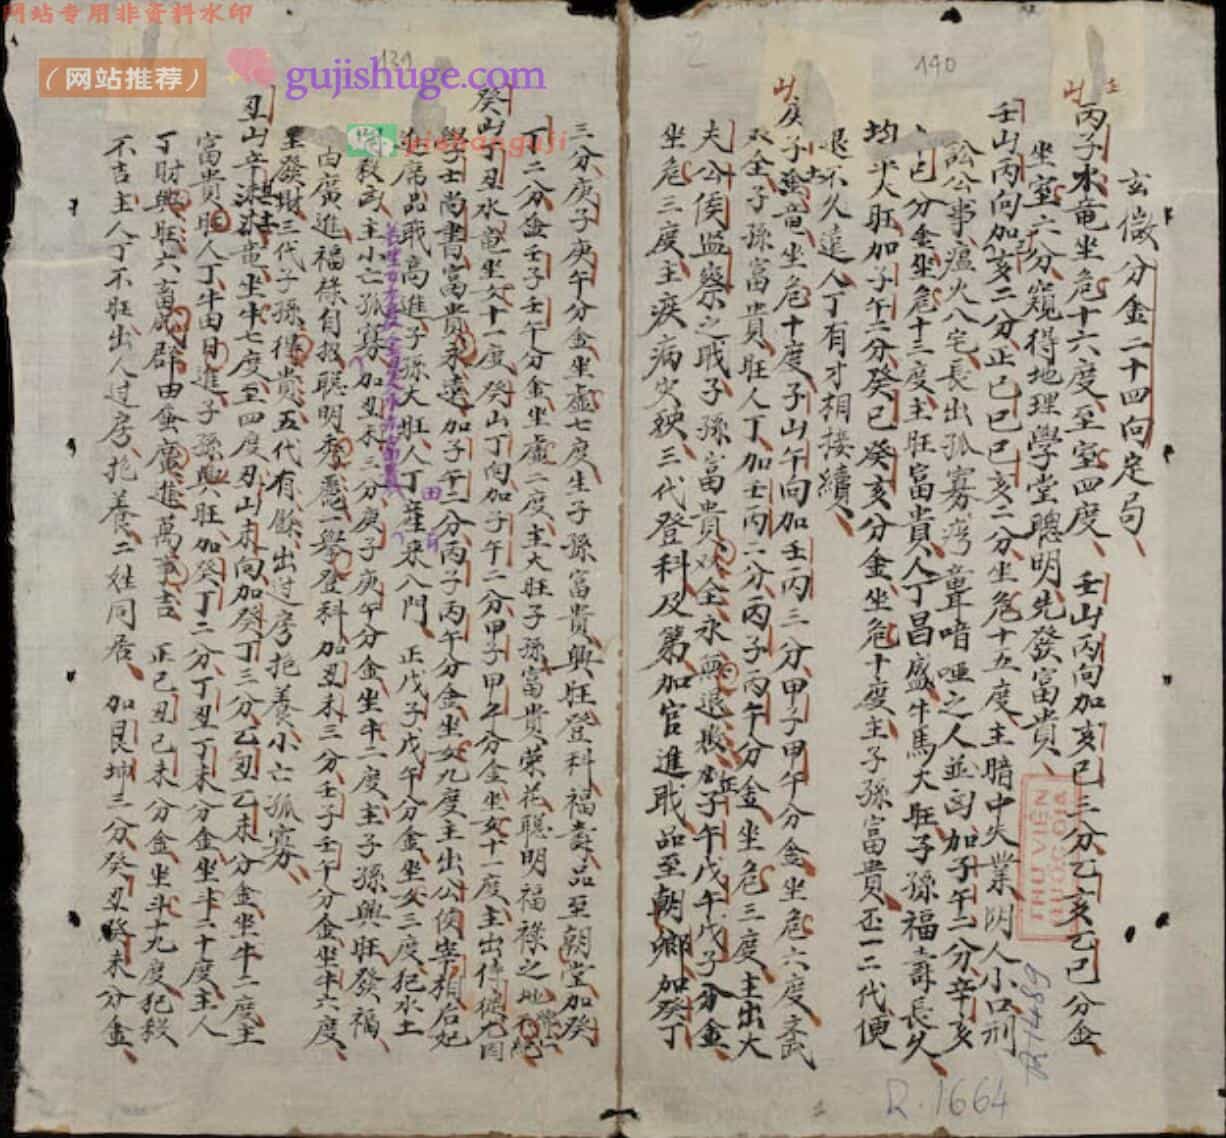 网站专用非资料水印
（网站推荐）
gujishuge.com
139
2
140
玄微分金二十四向定局
丙子水竜坐危十六度至室四度、壬山丙向加亥巳三分乙亥乙巳分金
坐室六分窺得地理學堂聰明先發富貴、
壬山丙向加亥二分止巳巳巳亥二分坐危十五度主暗中失業陰人小口刑
訟公事瘟火八宅長出孤寡灣聾喑啞之人並凶加子午二分辛亥
辛巳分金坐危十三度主旺富貴人丁昌盛牛馬大旺子孫福壽長久
均平大旺加子午二分癸巳癸亥分金坐危十度主子孫富貴丕一二代便
退不久遠人丁有才相接續、
庚子竜坐危十度子山午向加壬丙三分甲子甲午分金坐危六度文武
双全子孫富貴旺人丁加壬丙二分丙子丙午分金坐危三度主出大
夫公侯监察之職子孫富貴双全永無退敗 子午戊午戊子分金
坐危三度主疾病災殃三代登科及第加官進職品至朝鄉加癸丁
三分庚子庚午分金坐虛七度生子孫富貴興旺登科福壽品至朝堂加癸
丁二分金壬子壬午分金坐虛二度主大旺子孫富貴榮花聰明福祿之地
癸山丁丑水竜坐女十一度癸山丁向加子午二分甲子甲午分金坐女十一度主出傳德九因
學士尚書富貴永遠加子午二分丙子丙午分金坐女九度主出公侯宰相后妃
進席品職高進子孫大旺人丁產業八門、正戊子戊午分金坐女三度犯水土
敗主小亡孤寡加丑未三分庚子庚午分金坐牛二度主子孫興旺發福
由廣進福祿自招聰明秀麗一舉登科加丑未三分壬子壬午分金坐牛六度
里發財三代子孫得貴五代有餘出过房抱養小亡孤寡、
丑山辛 竜坐牛七度至四度丑山未向加癸丁三分乙丑乙未分金坐牛二度主
富貴旺人丁牛田日進子孫興旺加癸丁二分丁丑丁未分金坐斗二十度主人
丁財興旺六畜成群田蚕廣進萬事吉 正己丑己未分金坐斗十九度犯殺
不吉主人丁不旺出人过房抱養二姓同居、加艮坤三分癸丑癸未分金
THƯ VIỆN
QUỐC GIA
R.1664